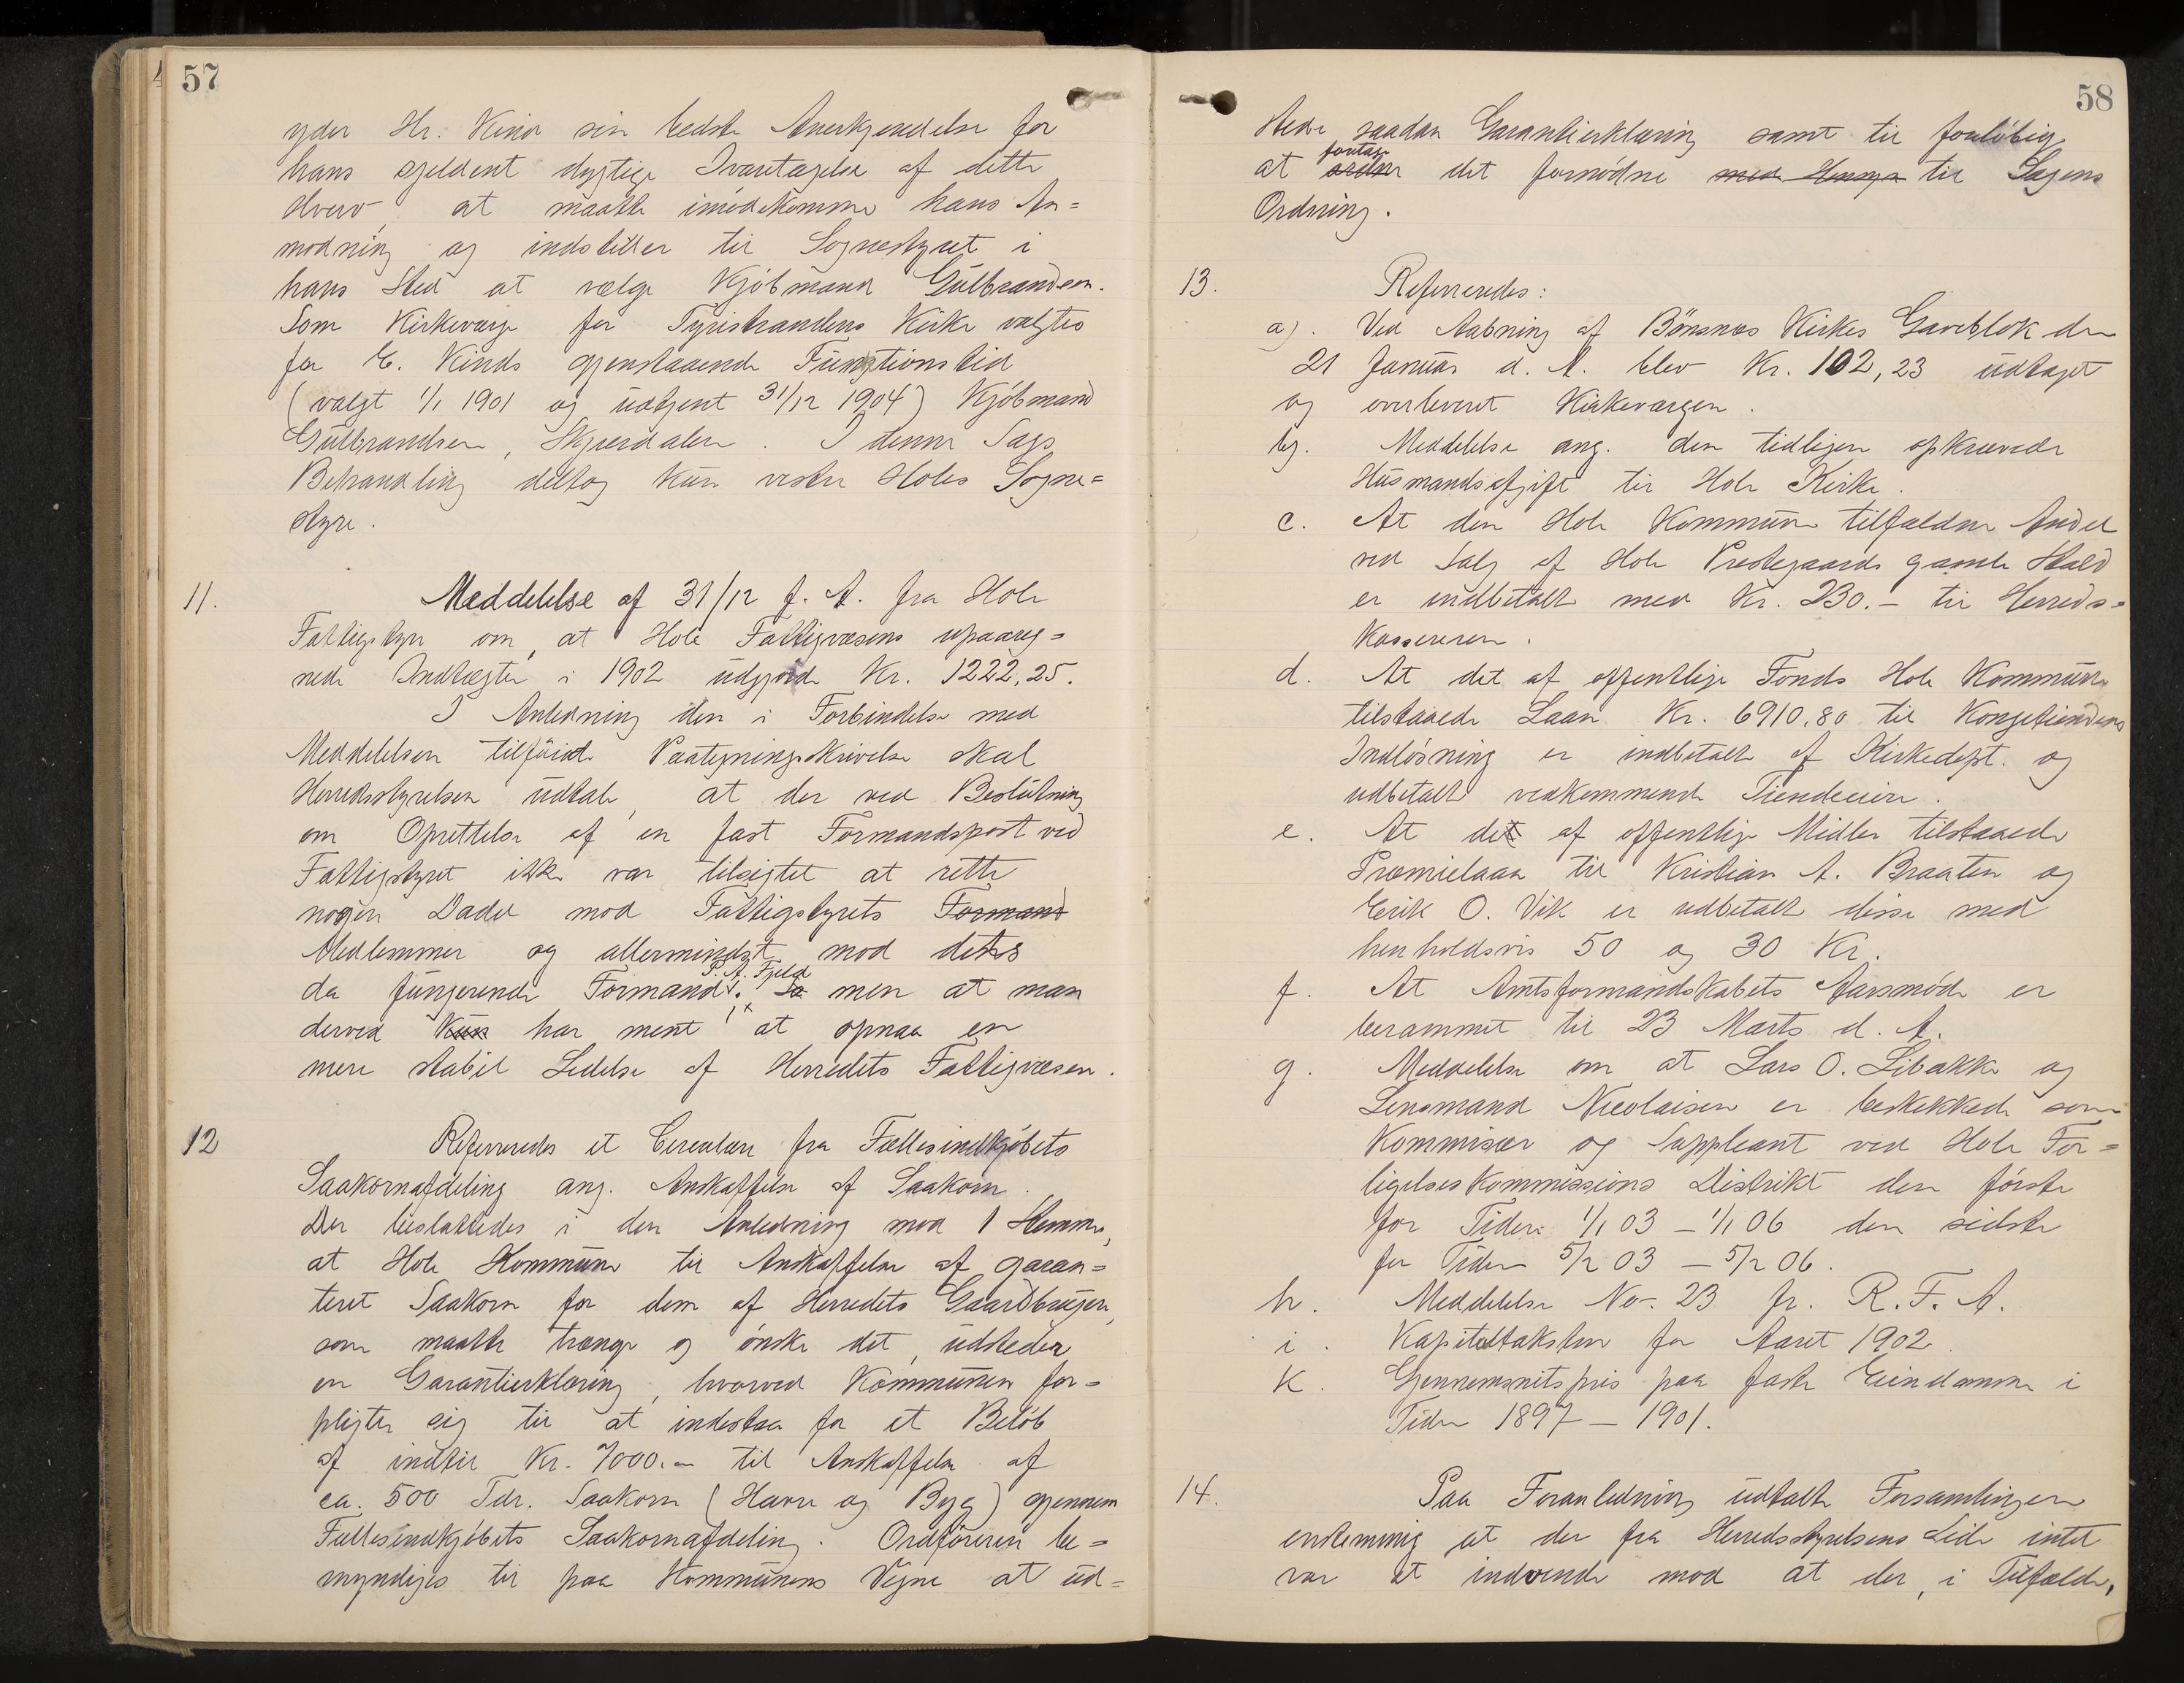 57
yder Hr. Kind sin bedste Anerkjendelse for
hans sjeldent dygtige Ivaretagelse af dette
Hverv, at maatte imødekomme hans An=
modning og indstiller til Sognestyret i
hans Sted at vælge Kjøbmand Gulbrandsen.
Som Kirkeværge for Tyristrandens Kirke valgtes
for E. Kinds gjenstaaende Funktionstid
(valgt 1/1 1901 og udtjent 31/12 1904) Kjøbmand
Gulbrandsen, Skjærdalen. I denne Sags
Behandling deltog kun vestre Holes Sogne=
styre.
11. Meddelelse af 31/12 f. A. fra Hole
Fattigstyre om, at Hole Fattigvæsens upaareg=
nede Indtægter i 1902 udgjorde Kr. 1222,25.
I Anledning den i Forbindelse med
Meddelelsen tilføiede Paategningsskrivelse skal
Herredsstyrelsen udtale, at der ved Beslutning
om Oprettelse af en fast Formandspost ved
Fattigstyret ikke var tilsigtet at rette
nogen Dadel mod Fattigstyrets Formand
Medlemmer og allermindst mod dets
P. A. Fjeld
da fungerende Formand, men at man
derved kun har ment at opnaa en
mere stabil Ledelse af Herredets Fattigvæsen.
12 Refereredes et Circulære fra Fællesindkjøbets
Saakornafdeling ang. Anskaffelse af Saakorn.
Der besluttedes i den Anledning mod 1 Stemme,
at Hole Kommune til Anskaffelse af garan=
teret Saakorn for dem af Herredets Gaardbrugere,
som maatte trænge og ønske det, udsteder
en Garantierklæring, hvorved Kommunen for=
pligter sig til at indestaa for et Beløb
af indtil Kr. 7000.- til Anskaffelse af
ca. 500 Tdr. Saakorn (Havre og Byg) gjennem
Fællesindkjøbets Saakornafdeling. Ordføreren be=
myndiges til paa Kommunens Vegne at ud=
58
stede saadan Garantierklæring samt til forøvrig
foretage
at ordner det fornødne med Hensyn til Sagens
Ordning.
13. Refereredes:
a). Ved Aabning af Bønsnæs Kirkes Gaveblok den
21 Januar d. A. blev Kr. 102,23 udtaget
og overleveret Kirkeværgen.
b). Meddelelse ang. den tidligere opkrævede
Husmandsafgift til Hole Kirke.
c. At den Hole Kommune tilfaldne Andel
ved Salg af Hole Prestegaards gamle Stald
er indbetalt med Kr. 230.- til Herreds=
kassereren.
d. At det af offentlige Fonds Hole Kommune
tilstaaede Laan Kr. 6910.80 til Kongetiendens
Indløsning er indbetalt af Kirkedept. og
udbetalt vedkommende Tiendeeiere.
e. At det af offentlige Midler tilstaaede
Præmielaan til Kristian A. Braaten og
Erik O. Vik er udbetalt disse med
henholdsvis 50 og 30 Kr.
f. At Amtsformandskabets Aarsmøde er
berammet til 23 Marts d. A.
g. Meddelelse om at Lars O. Libakke og
Lensmand Nicolaisen er beskikkede som
Kommisær og Suppleant ved Hole For=
ligelseskommissions Distrikt den første
for Tiden 1/1 03 - 1/1 06 den sidste
for Tiden 5/2 03 - 5/2 06.
h. Meddelelse No. 23 fr. R. F. A.
i. Kapiteltakster for Aaret 1902.
k. Gjennemsnitspris paa faste Eiendomme i
Tiden 1897 - 1901.
14. Paa Foranledning udtalte Forsamlingen
enstemmig at der fra Herredsstyrelsens Side intet
var at indvende mod at der, i Tilfælde,